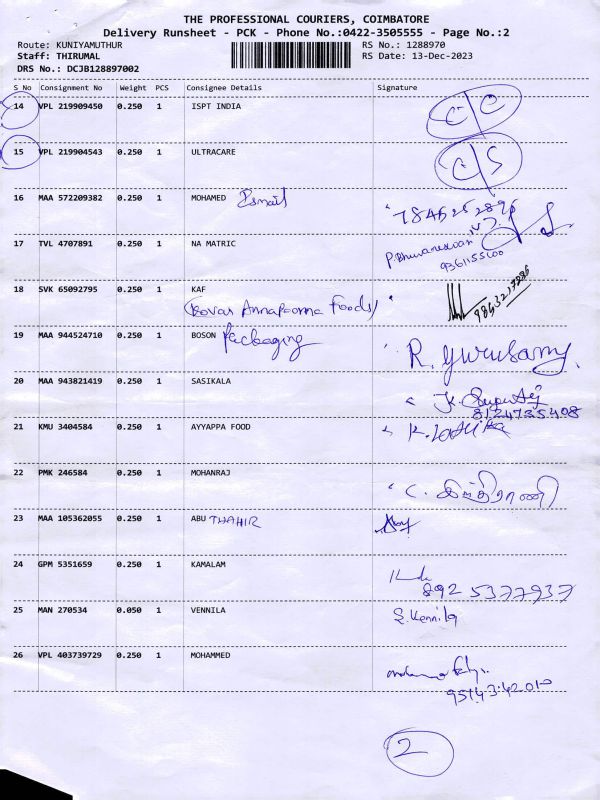 THE PROFESSIONAL COURIERS, COIMBATORE
Delivery Runsheet - PCK - Phone No.:0422-3505555 - Page No.:2
Route: KUNIYAMUTHUR RS No.: 1288970
Staff: THIRUMAL RS Date: 13-Dec-2023
DRS No.: DCJB128897002
S No Consignment No Weight PCS Consignee Details Signature
14 VPL 219909450 0.250 1 ISPT INDIA
15 VPL 219904543 0.250 1 ULTRACARE C/S
16 MAA 572209382 0.250 1 MOHAMED Ismail
17 TVL 4707891 0.250 1 NA MATRIC P.Bhuvaneswari
9361155600
18 SVK 65092795 0.250 1 KAF
(Kovai Annapoorna Foods)
19 MAA 944524710 0.250 1 BOSON Packaging R. Gurusamy
20 MAA 943821419 0.250 1 SASIKALA
8124735408
21 KMU 3404584 0.250 1 AYYAPPA FOOD K.
22 PMK 246584 0.250 1 MOHANRAJ C. இந்திராணி
23 MAA 105362055 0.250 1 ABU THAHIR
24 GPM 5351659 0.250 1 KAMALAM
892 5377937
25 MAN 270534 0.050 1 VENNILA S. Vennila
26 VPL 403739729 0.250 1 MOHAMMED
9514342010
2